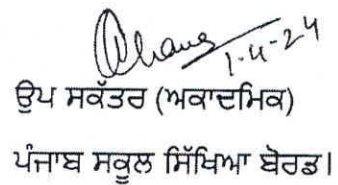 1-4-24
ਉਪ ਸਕੱਤਰ (ਅਕਾਦਮਿਕ)
ਪੰਜਾਬ ਸਕੂਲ ਸਿੱਖਿਆ ਬੋਰਡ।